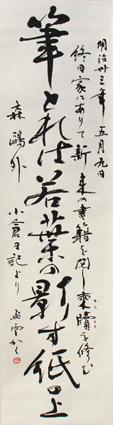 明治卅三年 五月九日
終日家にありて新来の書籍を閲し案牘を修む
筆とれは若葉の影す紙の上
森鷗外
小倉日記より